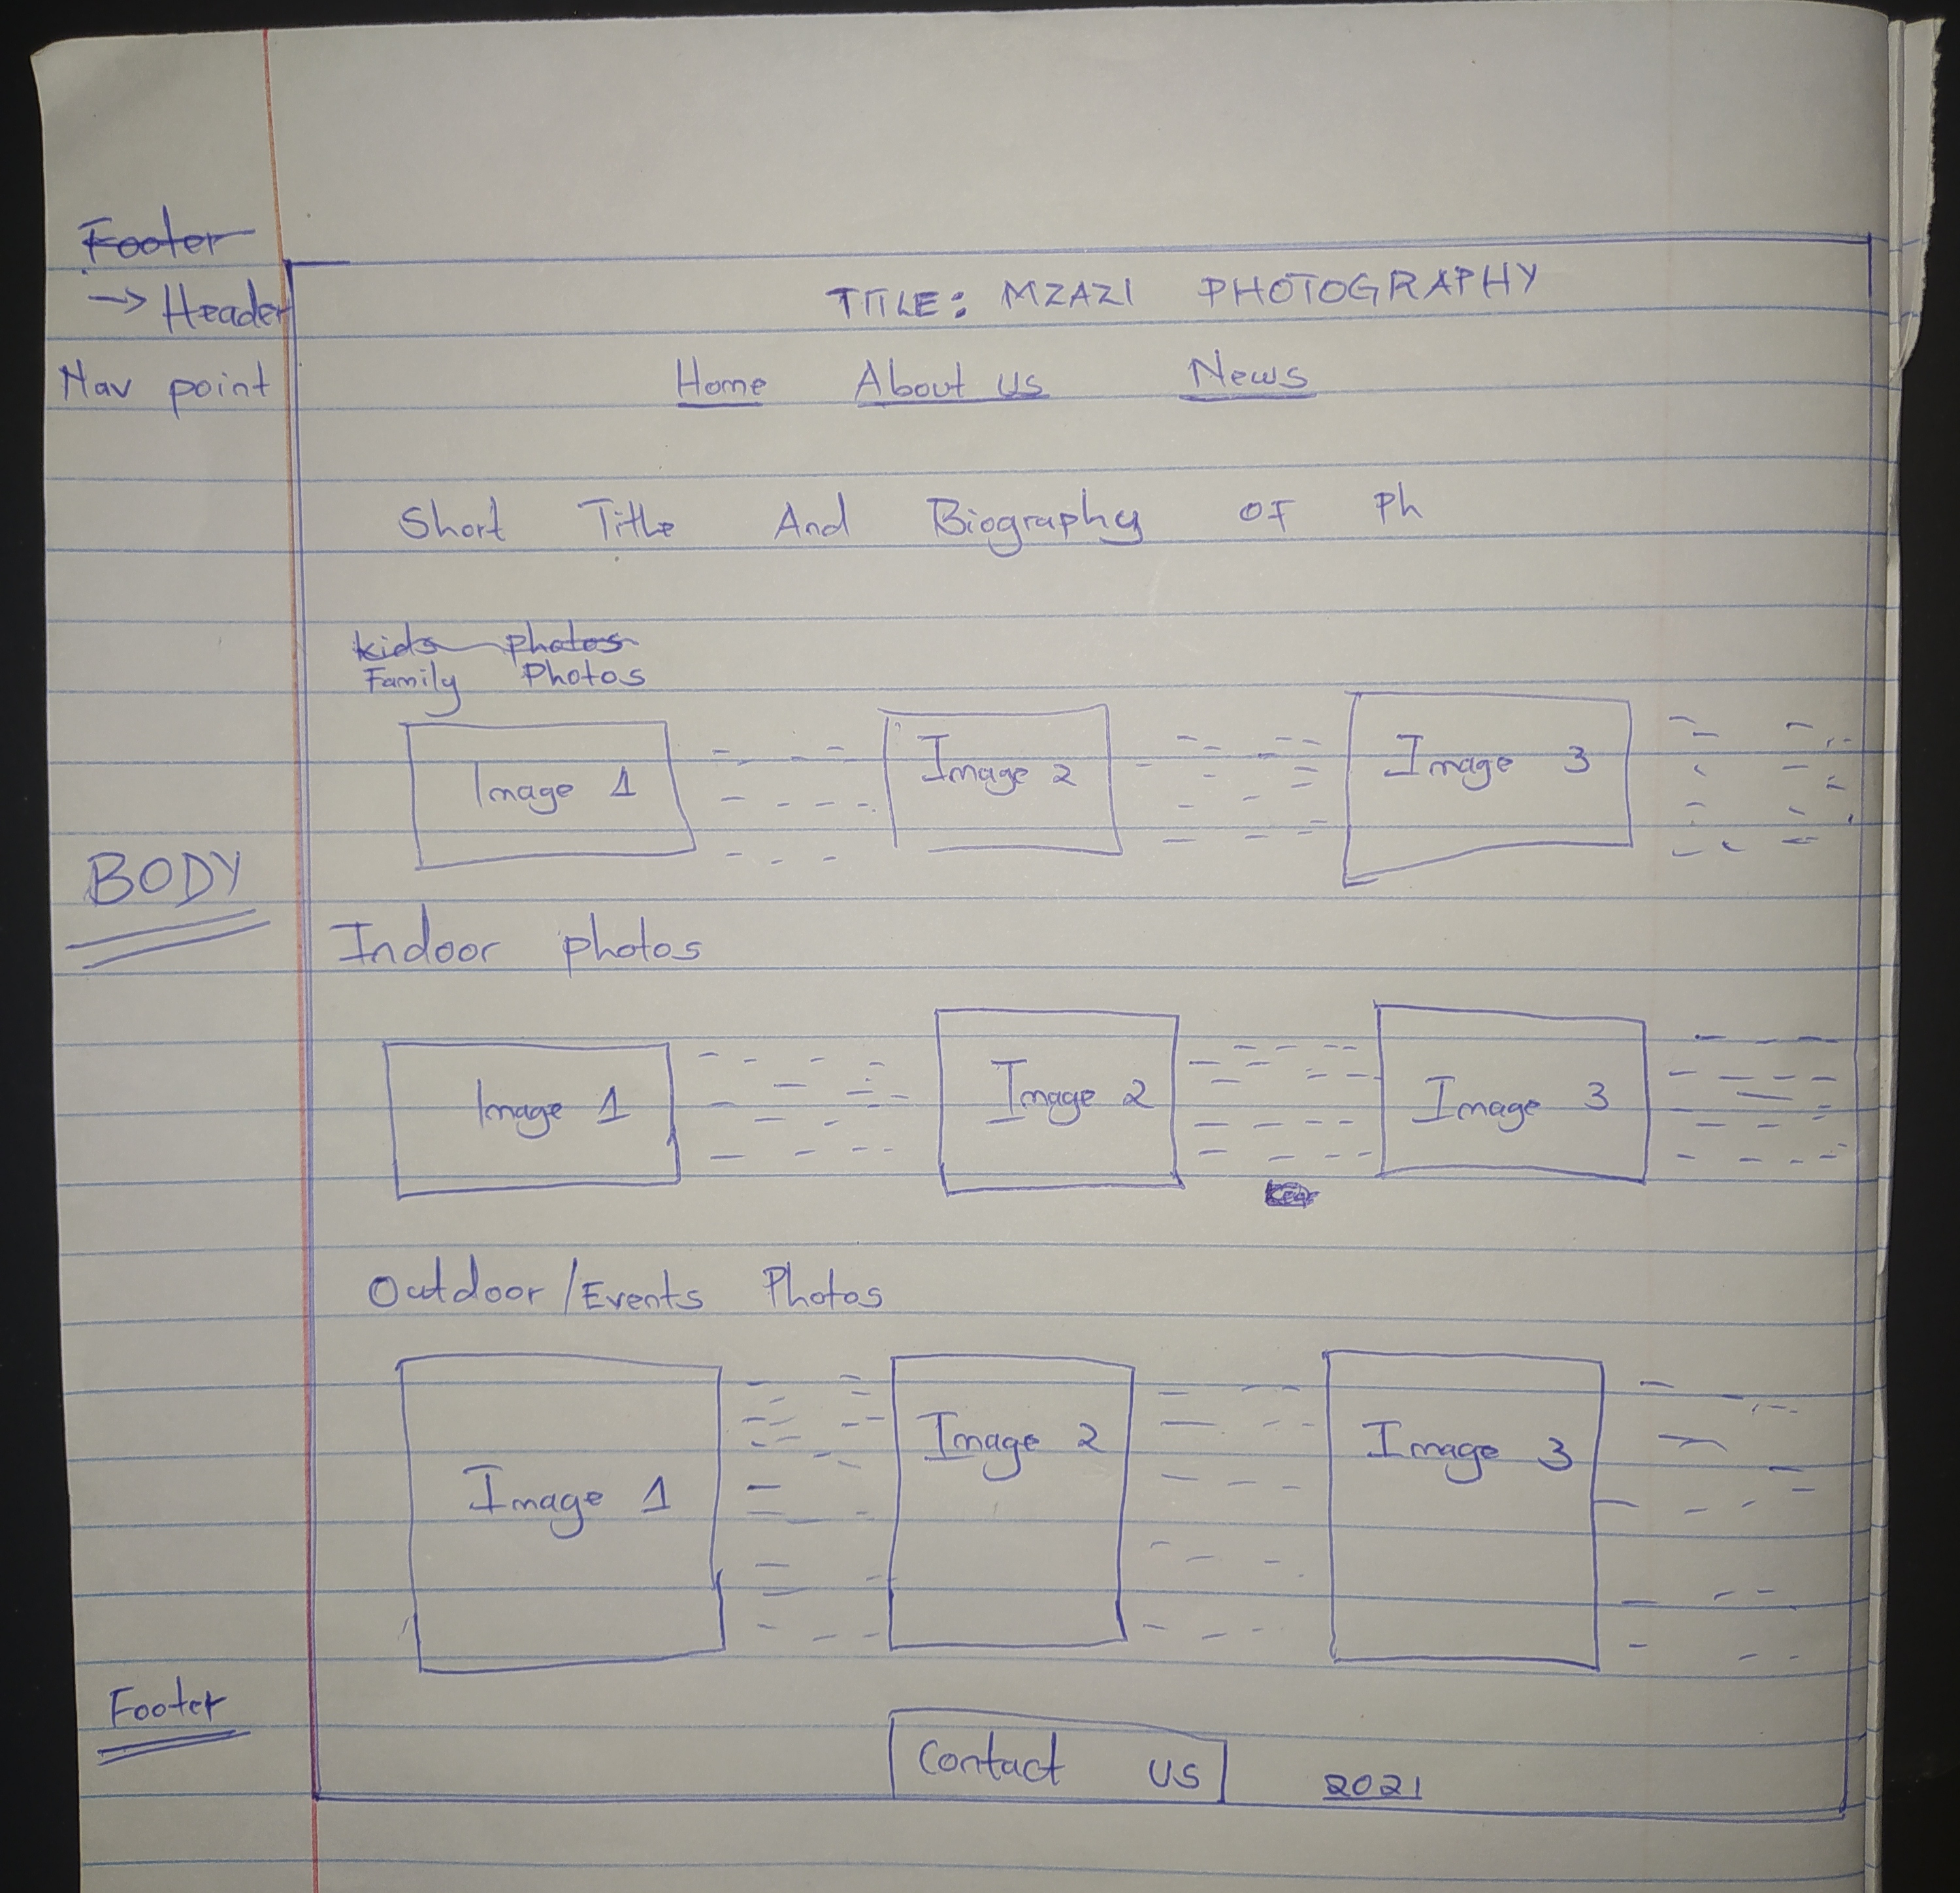 Footer
→ Header
TITLE: MZAZI PHOTOGRAPHY
Nav point
Home About us News
Short Title And Biography OF Ph
kids photos
Family Photos
Image 1 Image 2 Image 3
BODY
Indoor photos
Image 1 Image 2 Image 3
Outdoor/Events Photos
Image 1 Image 2 Image 3
Footer
Contact us 2021